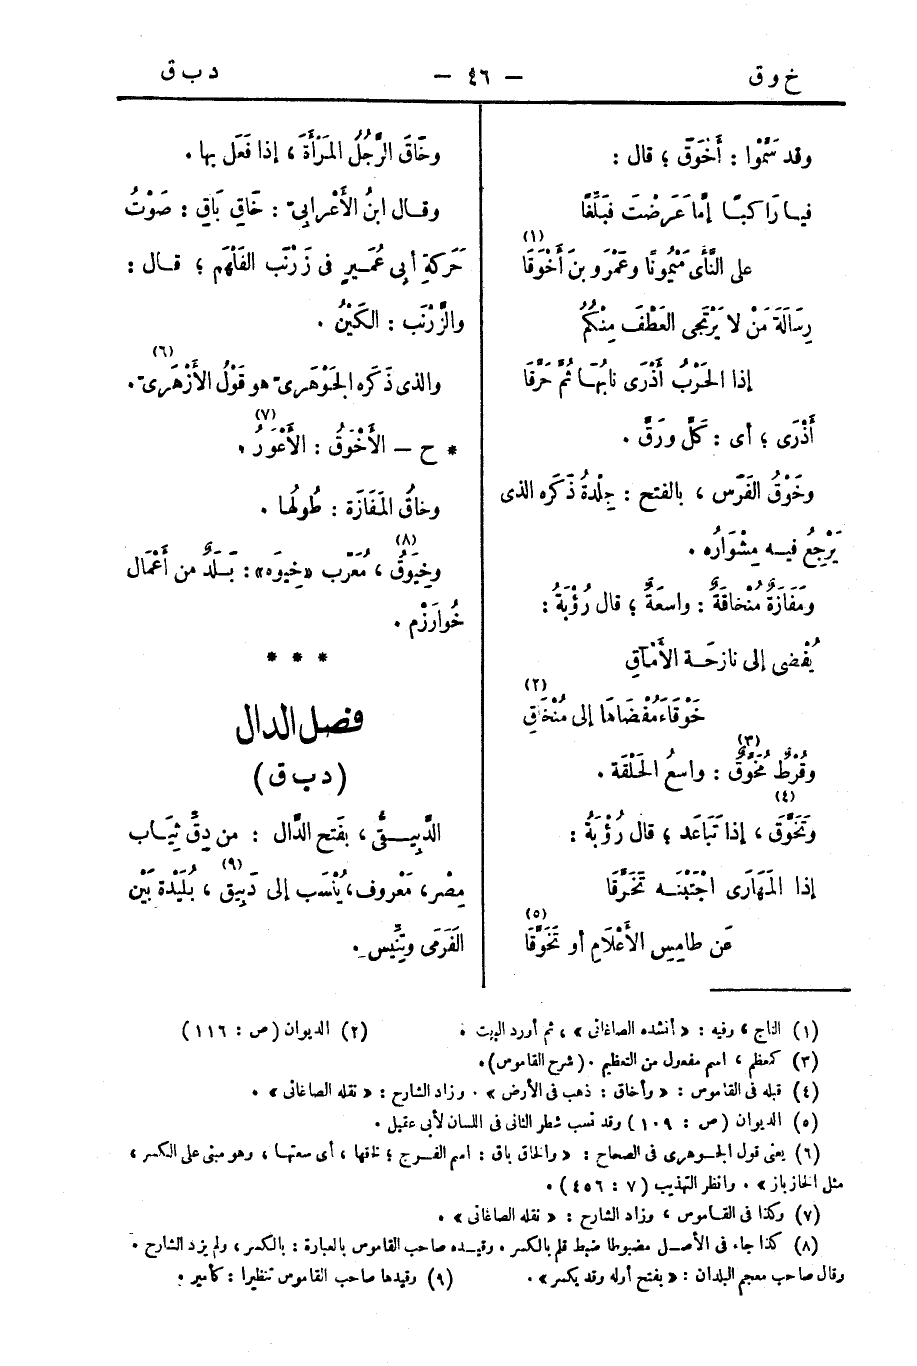 خ وق — ٤٦ — د ب ق
وقد سَمَّوْا : أَخْوَقَ ؛ قال :
فيا رَاكبًا إمَّا عَرَضْتَ فبَلِّغًا
على النَّأْى مَيْمُونًا وعَمْرَو بنَ أَخْوَقَا (١)
رِسَالَةَ مَنْ لا يَرْتَجى العَطْفَ مِنْكُمُ
إذا الحَرْبُ أَذْرَى نابُهَا ثُمَّ حَرَّقَا
أَذْرَى ؛ أى : كَلَّ ورَقَّ .
وخَوْقُ الفَرَس ، بالفتح : جِلْدةُ ذَكَره الذى
يَرْجِعُ فيـه مِشْوَارُه .
ومَفَازَةٌ مُنْخاقَةٌ : واسعَةٌ ؛ قال رُؤْبَةُ :
يُفْضى إلى نازحَـة الأَمْآقِ
خَوْقَاءَ مُفْضَاهَا إلى مُنْخَاقِ (٢)
وقُرْطٌ مُخَوَّقٌ (٣) : واسعُ الحَلْقَة .
وتَخَوَّق (٤) ، إذا تَبَاعَد ؛ قال رُؤْبَةُ :
إذا المَهَارَى اجْتَبْنَـه تَخَرَّقَا
عَن طامِسِ الأَعْلَامِ أو تَخَوَّقَا (٥)
وخَاقَ الرَّجُلُ المَرْأَةَ ، إذا فَعَل بها .
وقـال ابنُ الأَعْرابىّ : خَاقِ بَاقِ : صَوْتُ
حَرَكةِ أبى عُمَـيرٍ فى زَرْنَب الفَلْهَم ؛ قـال :
والزَّرْنَب : الكَيْنُ .
والذى ذَكَره الجَوْهَرىّ هو قَوْلُ الأَزْهَرىّ (٦) .
* ح — الأَخْوَقُ : الأَعْوَرُ (٧) .
وخاقُ المَفَازَة : طُولُهَا .
وخِيَوَقُ (٨) ، مُعَرَّب «خِيوَه» : بَـلَدٌ من أَعْمَال
خُوارَزْم .
* * *
فصل الدال
(د ب ق)
الدَّبِيـقىُّ ، بفَتح الدَّال : من دِقّ ثِيَاب
مِصْر، مَعْروف ، يُنْسَب إلى دَبِيق (٩) ، بُلَيْدَة بَيْن
الفَرَمَى وتِنِّيس .
(١) التاج ، وفيه : « أنشده الصاغانى » ، ثم أورد البيت . (٢) الديوان (ص : ١١٦)
(٣) كمعظم ، اسم مفعول من التعظيم . (شرح القاموس) .
(٤) قبله فى القاموس : « وأخاق : ذهب فى الأرض » . وزاد الشارح : « نقله الصاغانى » .
(٥) الديوان (ص : ١٠٩) وقد نسب شطر الثانى فى اللسان لأبى عقيل .
(٦) يعنى قول الجـوهرى فى الصحاح : « والخاق باق : اسم الفـرج ؛ لخاقها ، أى سعتهـا ، وهو مبنى على الكسر ،
مثل الخاز باز » . وانظر التهذيب (٧ : ٤٥٦) .
(٧) وكذا فى القـاموس ، وزاد الشارح : « نقله الصاغانى » .
(٨) كذا جاء فى الأصـل مضبوطا ضبط قلم بالكسر . وقيـده صاحب القاموس بالعبارة : بالكسر ، ولم يزد الشارح .
وقال صاحب معجم البلدان : « بفتح أوله وقد يكسر » . (٩) وقيدها صاحب القاموس تنظيرا : كأمير .